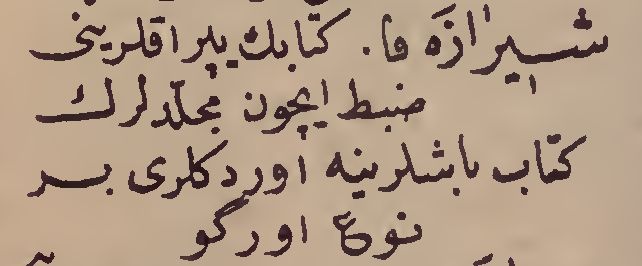 شیرازَه فا. کتابك یپراقلرینی
ضبط ایچون مجلّدلرك
کتاب باشلرینه اوردکلری بر
نوع اورگو